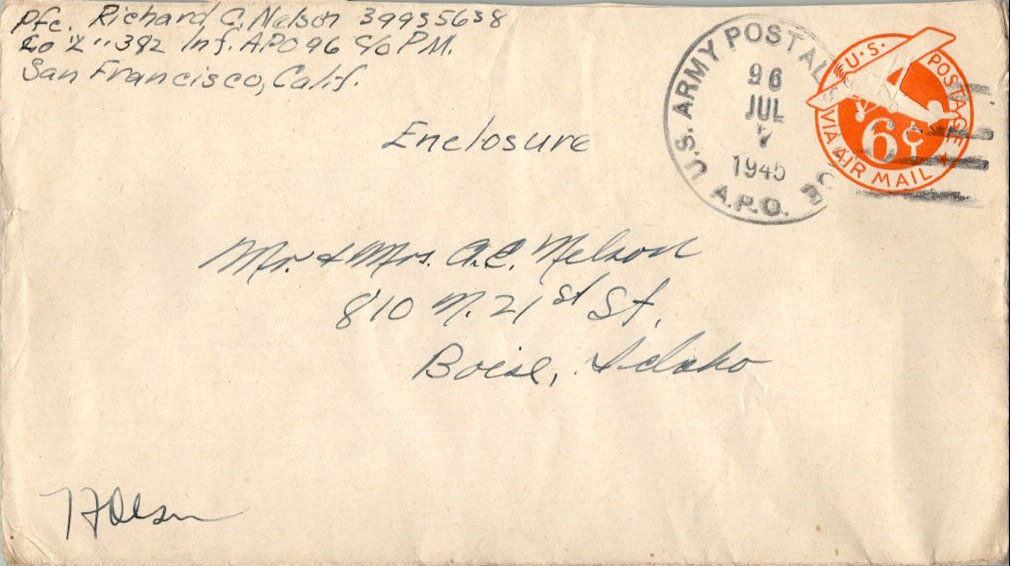 Pfc. Richard C. Nelson 39935638
Co "L" 382 Inf. APO 96 c/o P.M.
San Francisco, Calif.
U.S. ARMY POSTAL
A.P.O.
96
JUL
7
1945
U.S. POSTAGE
6¢
VIA AIR MAIL
Enclosure
Mr. & Mrs. A.C. Nelson
810 N. 21st St.
Boise, Idaho